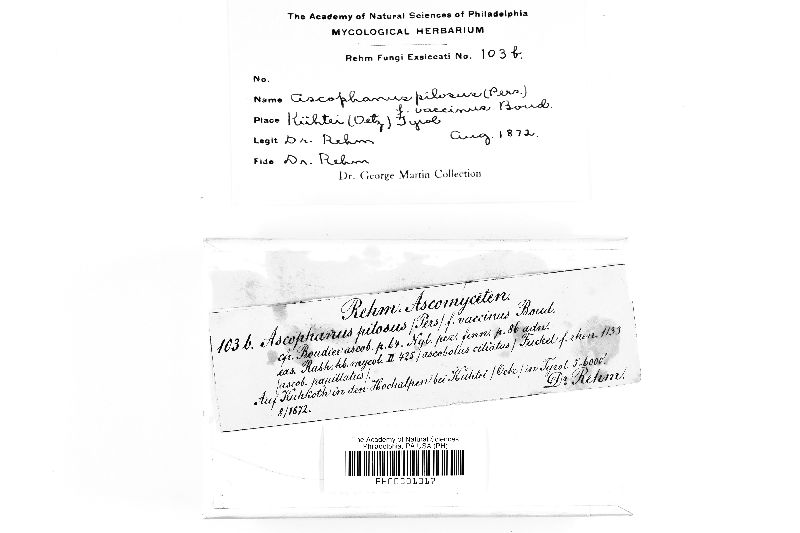 The Academy of Natural Sciences of Philadelphia
MYCOLOGICAL HERBARIUM
Rehm Fungi Exsiccati No. 103 b.
No.
Name Ascophanus pilosus (Pers.)
f. vaccinus Boud.
Place Kühtei (Oetz) Tyrol
Legit Dr. Rehm Aug. 1872.
Fide Dr. Rehm
Dr. George Martin Collection
Rehm. Ascomyceten.
103 b. Ascophanus pilosus /Pers/ f. vaccinus Boud.
cfr. Boudier ascob. p. 64. Nyl. pez. fenn. p. 86 adn.
exs. Rabh. hb. mycol. II 425 /ascobolus ciliatus/ Fuckel f. rhen. 1133
/ascob. papillatus/.
Auf Kuhkoth in den Hochalpen bei Kühtei /Oetz/ in Tyrol. 5-6000'
8/1872. Dr Rehm.
The Academy of Natural Sciences
Philadelphia, PA USA (PH)
PH00001017